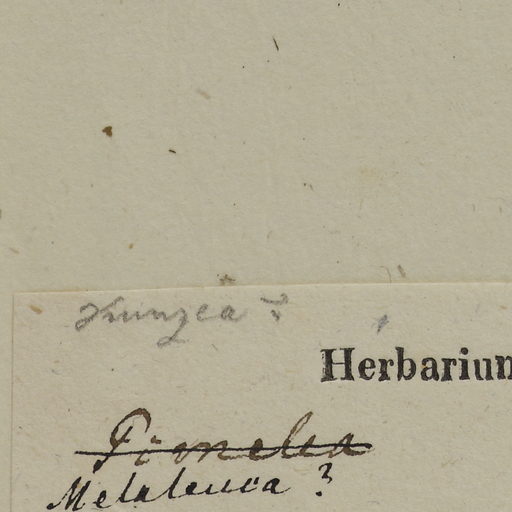 Kunzea ?
Herbarium
Pimelea
Melaleuca ?